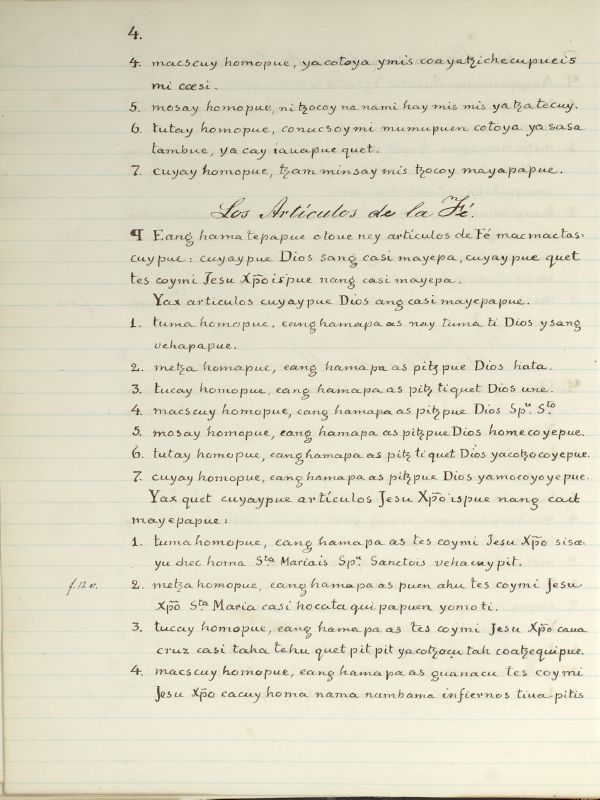 4.
4. macscuy homopue, yacotoya ymis coayatzichecupueis
mi cœsi.
5. mosay homopue, ni tzocoy na nami hay mis mis yatzatecuy.
6. tutay homopue, conucsoy mi mumupuen cotoya yasasa
tambue, ya cay iauapue quet.
7. cuyay homopue, tzam minsay mis tzocoy mayapapue.
Los Artículos de la Fé.
¶ Eang hamatepapue otoue ney artículos de Fé macmactas-
cuypue: cuyaypue Dios sang casi mayepa, cuyaypue quet
tes coymi Jesu Xp̃o ispue nang casi mayepa.
Yax articulos cuyaypue Dios ang casi mayepapue.
1. tuma homopue, eang hamapa as ney tuma ti Dios ysang
vehapapue.
2. metza homopue, eang hamapa as pitzpue Dios hata.
3. tucay homopue, eang hamapa as pitz tiquet Dios une.
4. macscuy homopue, eang hamapa as pitzpue Dios Spu. Sto
5. mosay homopue, eang hamapa as pitzpue Dios homecoyepue.
6. tutay homopue, eang hamapa as pitz tiquet Dios yacotzocoyepue.
7. cuyay homopue, eang hamapa as pitzpue Dios yamocoyoyepue.
Yax quet cuyaypue artículos Jesu Xp̃o ispue nang cait
mayepapue:
1. tuma homopue, eang hamapa as tes coymi Jesu Xp̃o sisœ
yu chec homa Sta Mariais Spu Sanctois vehacuy pit.
f. 12 v. 2. metza homopue, eang hamapa as puen ahu tes coymi Jesu
Xp̃o Sta Maria casi hocata qui papuen yomo ti.
3. tucay homopue, eang hamapa as tes coymi Jesu Xp̃o caua
cruz casi taha tehu quet pit pit yacotzocu tah coatzequipue.
4. macscuy homopue, eang hamapa as guanacu tes coymi
Jesu Xp̃o cacuy homa nama numbama infiernos tiua pitis